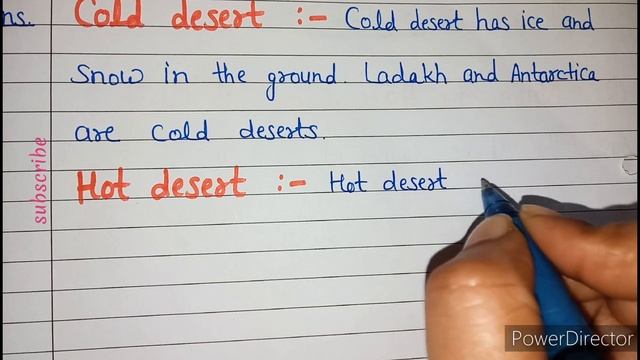 ns.
Cold desert :- Cold desert has ice and
Snow in the ground. Ladakh and Antarctica
are cold deserts.
Hot desert :- Hot desert
subscribe
PowerDirector